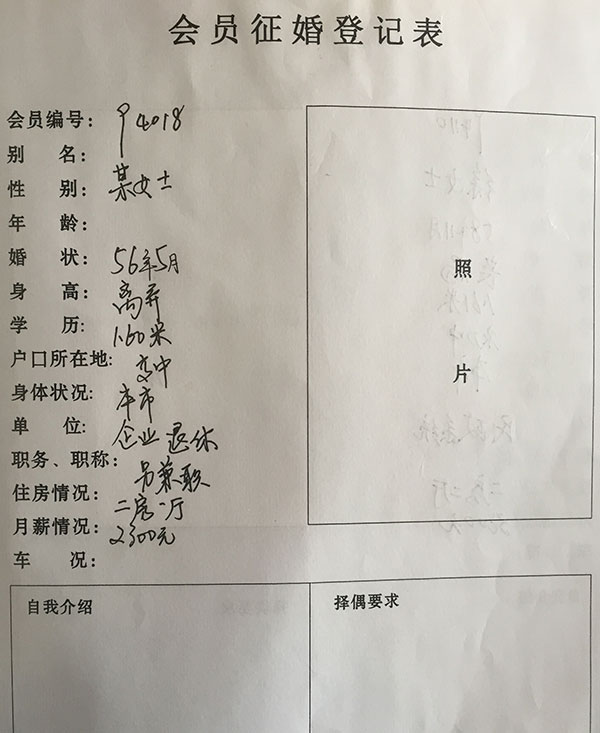 会员征婚登记表
会员编号： 4018
别 名：
性 别： 某女士
年 龄：
婚 状： 56年5月
身 高： 离异
学 历： 1.60米
户口所在地: 高中
身体状况: 本市
单 位: 企业退休
职务、职称：
住房情况： 另兼职
月薪情况： 二房一厅
车 况： 2300元
照
片
自我介绍
择偶要求